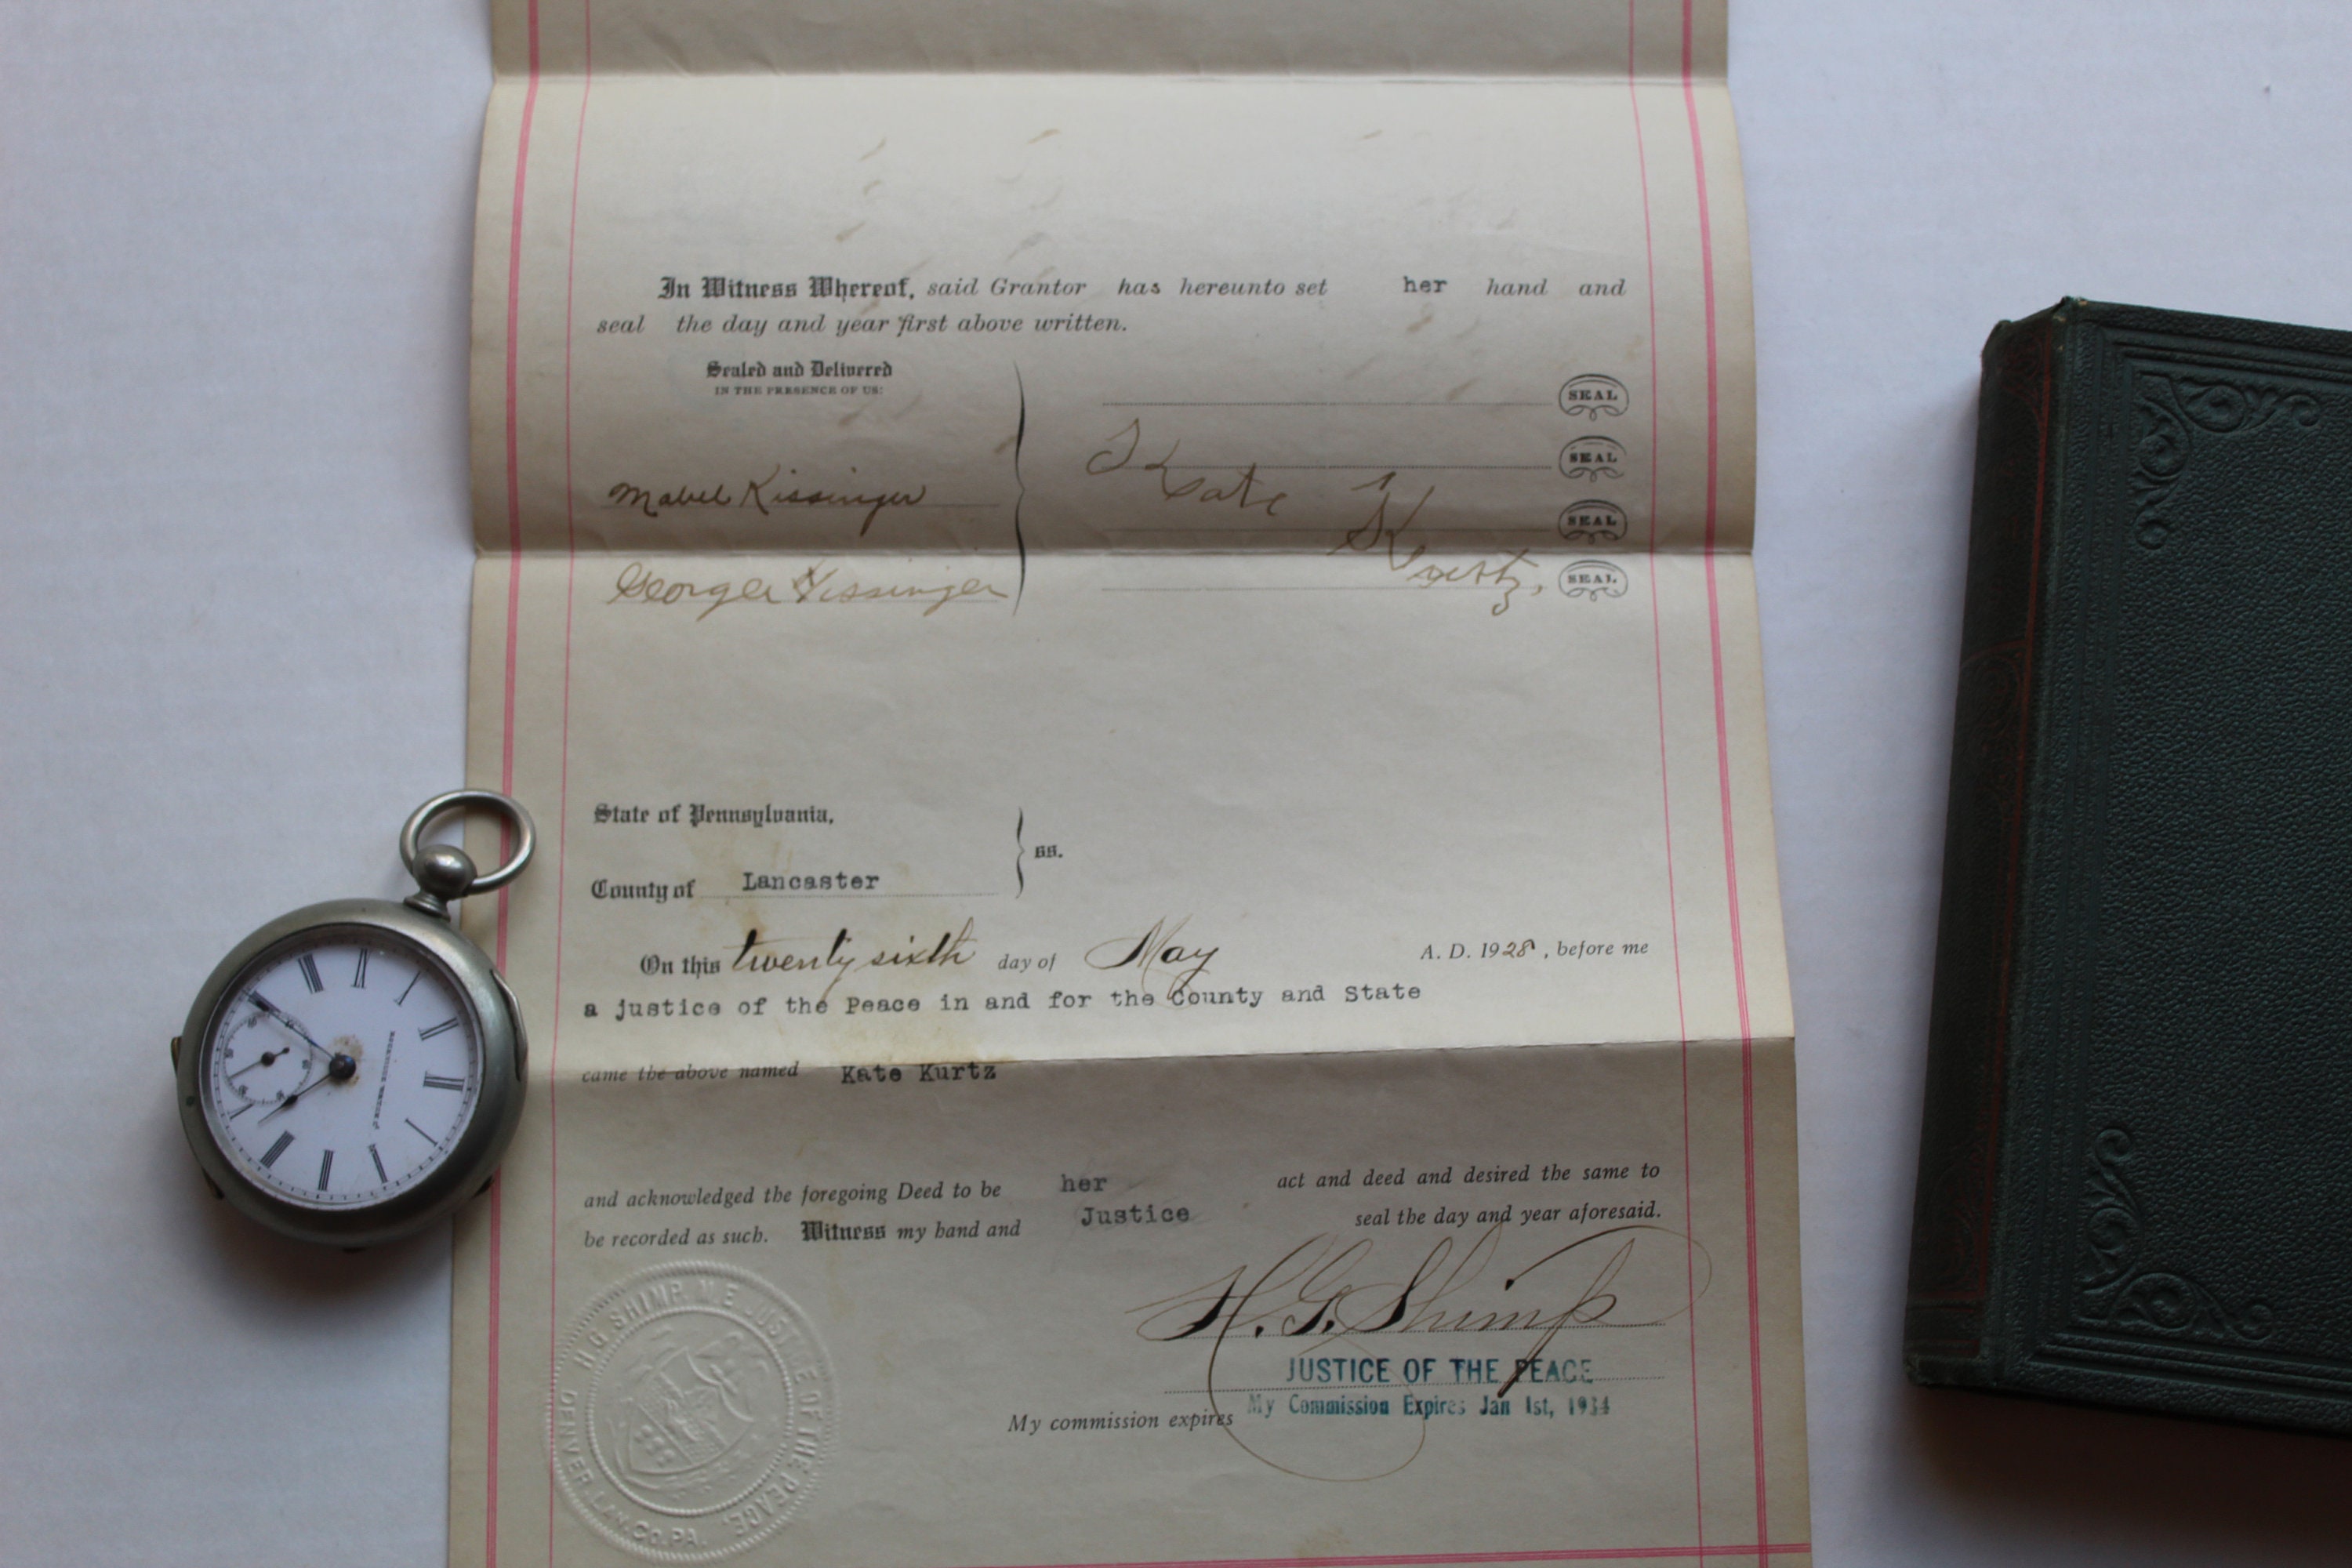 In Witness Whereof, said Grantor has hereunto set her hand and
seal the day and year first above written.
Sealed and Delivered
IN THE PRESENCE OF US:
SEAL
SEAL
SEAL
SEAL
Mabel Kissinger
George Kissinger
Kate Kurtz.
State of Pennsylvania,
County of Lancaster
ss.
On this twenty sixth day of May A. D. 1928, before me
a justice of the Peace in and for the County and State
came the above named Kate Kurtz
and acknowledged the foregoing Deed to be her act and deed and desired the same to
be recorded as such. Witness my hand and Justice seal the day and year aforesaid.
H. G. Shimp
JUSTICE OF THE PEACE
My commission expires My Commission Expires Jan 1st, 1934
H. G. SHIMP, JUSTICE OF THE PEACE,
DENVER, LAN. CO. PA.